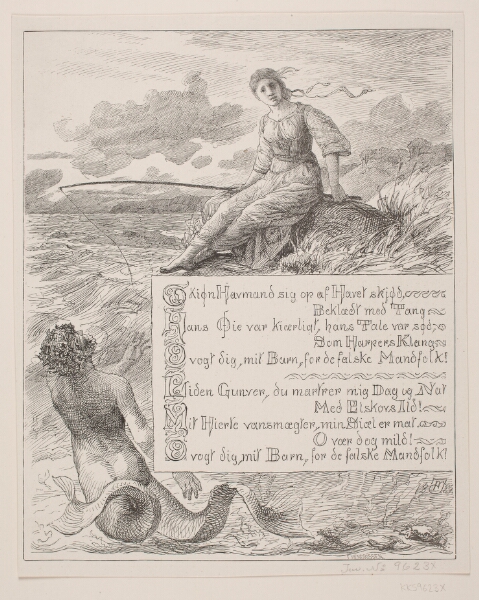 Skiøn Havmand sig op af Havet skjød,
Beklædt med Tang
Hans Øie var kiærligt, hans Tale var sød,
Som Harpers Klang
O vogt dig, mit Barn, for de falske Mandfolk!
Liden Gunver, du martrer mig Dag og Nat
Med Elskovs Ild!
Mit Hierte vansmægter, min Siæl er mat.
O vær dog mild!
O vogt dig, mit Barn, for de falske Mandfolk!